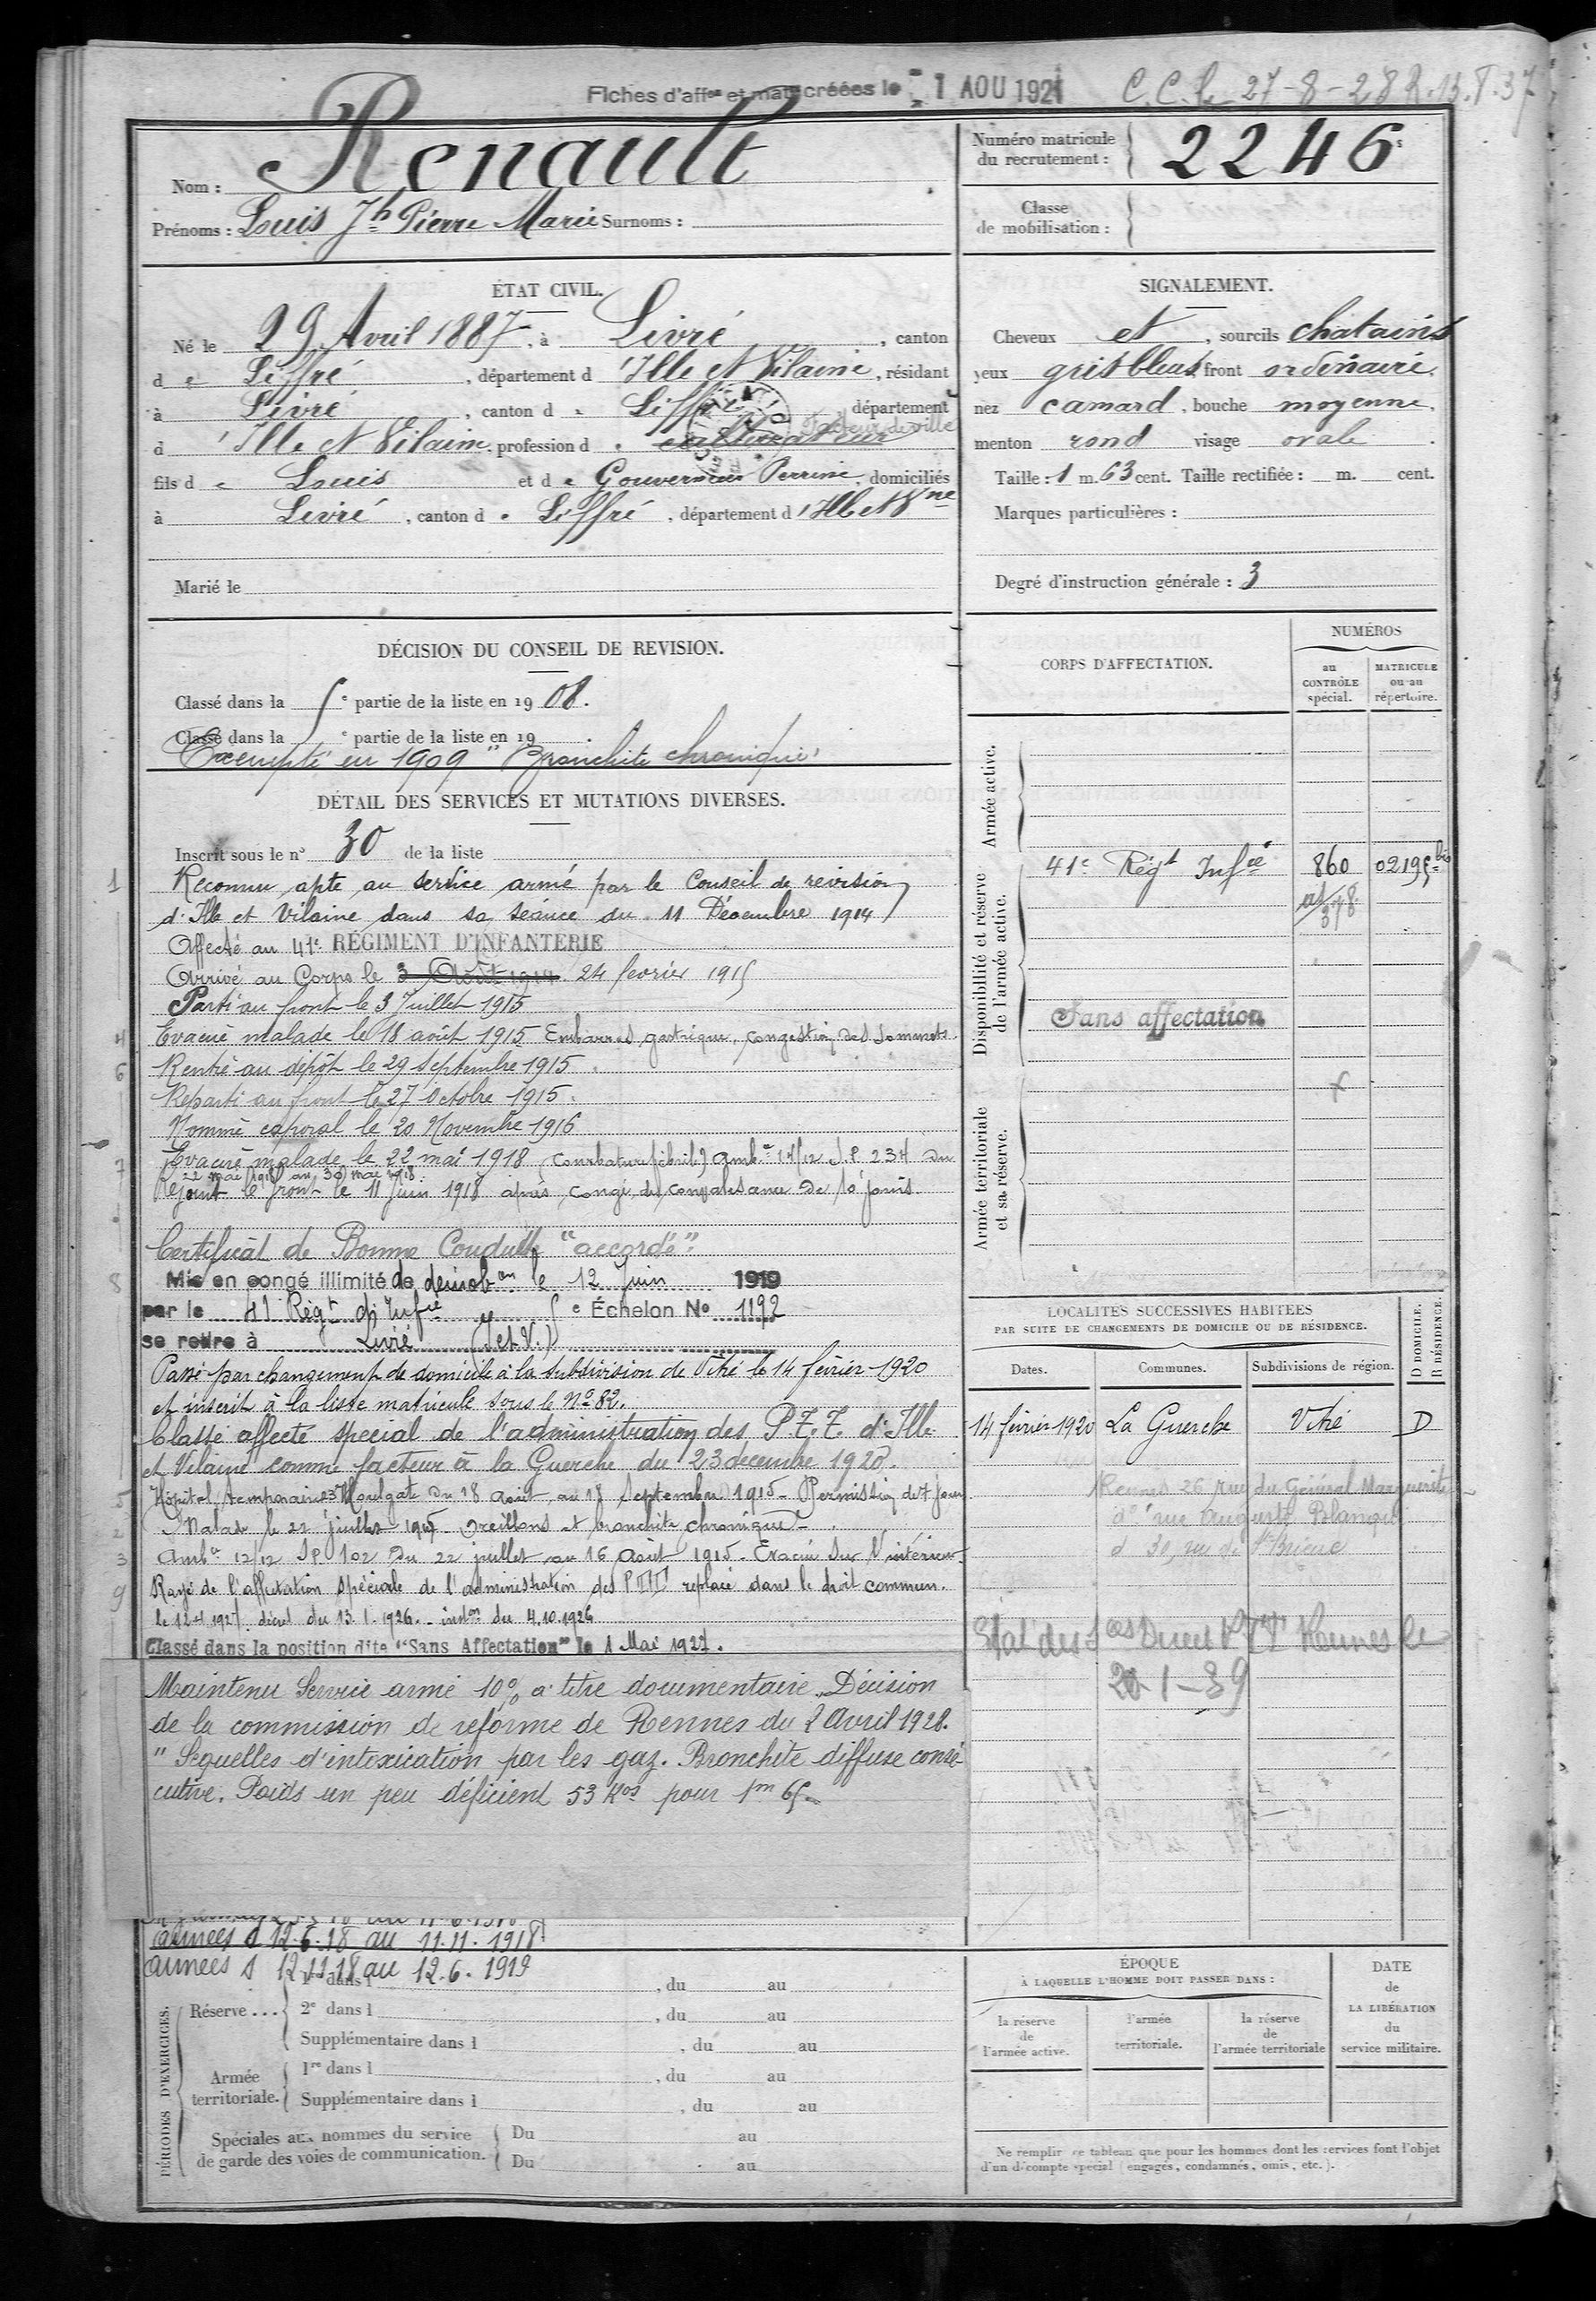 Fiches d'aff^on et mat^le créées le - 1 AOU 1921
C.C. le 27-8-28 R.13.T.37
Nom : Renault
Prénoms : Louis J^h Pierre Marie Surnoms :
Numéro matricule du recrutement : 2246
Classe de mobilisation :
ÉTAT CIVIL.
Né le 29 Avril 1887, à Livré, canton
d e Liffré, département d 'Ille et Vilaine, résidant
à Livré, canton d e Liffré département
Facteur de ville
d 'Ille et Vilaine, profession d e cultivateur
fils d e Louis et d e Gouverneur Perrine, domiciliés
à Livré, canton d e Liffré, département d 'Ille et V^ne
Marié le
SIGNALEMENT.
Cheveux et, sourcils chatains
yeux gris bleus, front ordinaire,
nez camard, bouche moyenne,
menton rond visage ovale.
Taille : 1 m. 63 cent. Taille rectifiée : m. cent.
Marques particulières :
Degré d'instruction générale : 3
DÉCISION DU CONSEIL DE REVISION.
Classé dans la 5^e partie de la liste en 1908.
Classé dans la ^e partie de la liste en 19
Exempté en 1909 "Bronchite chronique"
DÉTAIL DES SERVICES ET MUTATIONS DIVERSES.
Inscrit sous le n° 30 de la liste
1 Reconnu apte au service armé par le Conseil de revision
d'Ille et Vilaine dans sa séance du 11 Décembre 1914
Affecté au 41^e RÉGIMENT D'INFANTERIE
Arrivé au Corps le 3 Août 1914 24 fevrier 1915
Parti au front le 3 Juillet 1915
4 Evacué malade le 18 août 1915 Embarras gastrique, congestion des sommets.
6 Rentré au dépôt le 29 Septembre 1915.
Reparti au front le 27 Octobre 1915.
Nommé caporal le 20 Novembre 1916
7 Evacué malade le 22 mai 1918 (courbature fébrile) Amb^ce 14/12 S.P. 234 du
22 mai 1918 au 30 mai 1918.
Rejoint le front le 11 Juin 1918 après congé de convalescence de 10 jours.
Certificat de Bonne Conduite "accordé".
8 Mis en congé illimité de démob^on le 12 Juin 1919
par le 41 Rég^t d'Inf^ie 5^e Échelon N° 1192
se retire à Livré (I et V.)
Passé par changement de domicile à la subdivision de Vitré le 14 février 1920
et inscrit à la liste matricule sous le N° 82.
Classé affecté spécial de l'administration des P.T.T. d'Ille
et Vilaine comme facteur à la Guerche du 23 decembre 1920.
5 Hôpital temporaire 23 Houlgate du 18 août au 18 Septembre 1915 - Permission de 7 jours
2 Malade le 22 juillet 1915 - oreillons et bronchite chronique -
3 Amb^ce 12/12 SP 102 du 22 juillet au 16 Août 1915. Evacué sur l'intérieur.
9 Rayé de l'affectation spéciale de l'administration des PTT replacé dans le droit commun.
le 12-4 1927. décret du 13.1.1926. inst^on du 4.10.1926
Classé dans la position dite "Sans Affectation" le 1 Mai 1927.
Maintenu Service armé 10% à titre documentaire. Décision
de la commission de réforme de Rennes du 2 Avril 1928.
"Sequelles d'intoxication par les gaz. Bronchite diffuse consé-
cutive. Poids un peu déficient 53 K^os pour 1^m 65
armées A 12.6.18 au 11.11.1918
armées A 12.11.18 au 12.6.1919
CORPS D'AFFECTATION.
NUMÉROS
au CONTRÔLE spécial.
MATRICULE ou au répertoire.
Armée active.
Disponibilité et réserve de l'armée active.
41^e Rég^t Inf^ie 860 02195 bis
as 378
Sans affectation
Armée territoriale et sa réserve.
LOCALITÉS SUCCESSIVES HABITÉES
PAR SUITE DE CHANGEMENTS DE DOMICILE OU DE RÉSIDENCE.
D DOMICILE. R RÉSIDENCE.
Dates. Communes. Subdivisions de région.
14 février 1920 La Guerche Vitré D
Rennes 26 rue du Général Marguerite
d° rue Auguste Blanqui
d 30, rue de S^t Brieuc
Rennes le
20-1-39
PÉRIODES D'EXERCICES.
Réserve ... 1^re dans l , du au
2^e dans l , du au
Supplémentaire dans l , du au
Armée territoriale. 1^re dans l , du au
Supplémentaire dans l , du au
Spéciales aux hommes du service de garde des voies de communication. Du au
Du au
ÉPOQUE
À LAQUELLE L'HOMME DOIT PASSER DANS :
la réserve de l'armée active.
l'armée territoriale.
la réserve de l'armée territoriale
DATE de LA LIBÉRATION du service militaire.
Ne remplir ce tableau que pour les hommes dont les services font l'objet
d'un décompte spécial (engagés, condamnés, omis, etc.).